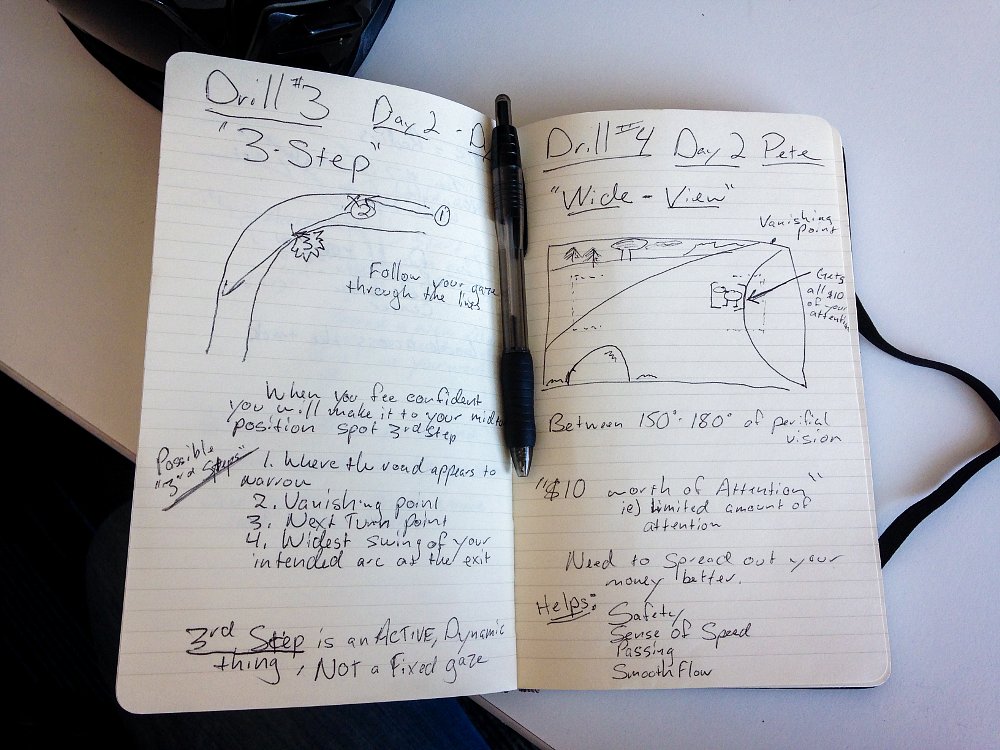 Drill #3
Day 2 - D
"3-Step"
1
2
3
Follow your gaze
through the lines
When you fee confident
you will make it to your mid
position spot 3rd step
Possible
"3rd Steps"
1. Where th road appears to
narrow
2. Vanishing point
3. Next Turn point
4. Widest swing of your
intended arc at the exit
3rd Step is an ACTIVE, Dynamic
thing, NOT a Fixed gaze
Drill #4 Day 2 Pete
"Wide - View"
Vanishing
point
Gets
all $10
of your
attention
Between 150°-180° of perifial
vision
"$10 worth of Attention"
ie) limited amount of
attention
Need to Spread out your
money better.
Helps: Safety
Sense of Speed
Passing
Smooth Flow